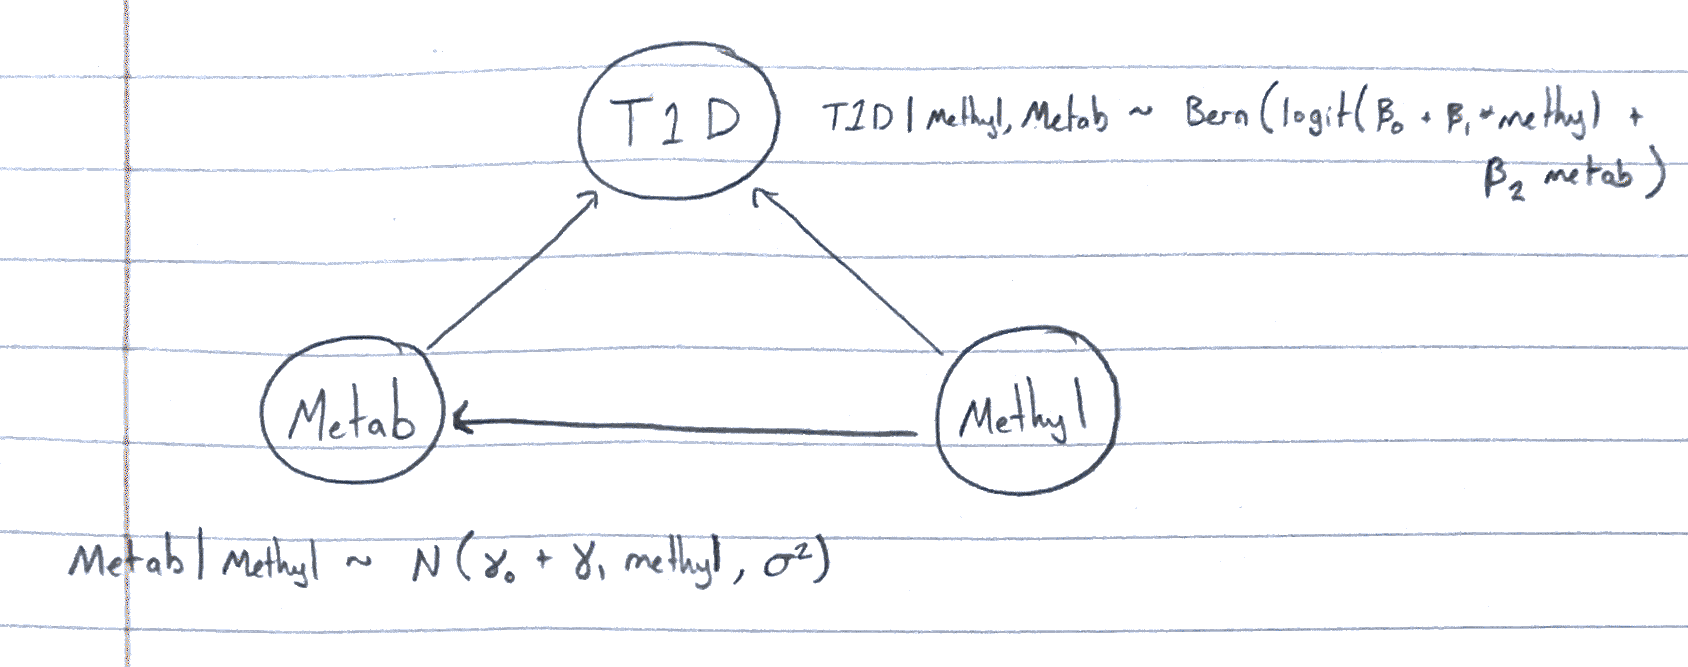 T1D
T1D | Methyl, Metab ~ Bern(logit(β₀ + β₁*methyl +
β₂ metab)
Metab
Methyl
Metab | Methyl ~ N(γ₀ + γ₁ methyl, σ²)